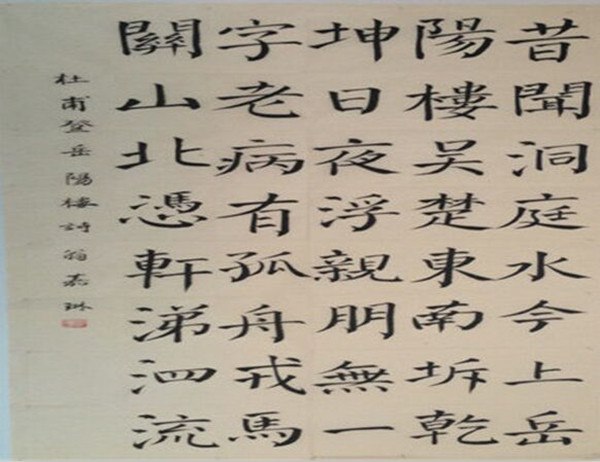 昔聞洞庭水今上岳
陽樓吳楚東南坼乾
坤日夜浮親朋無一
字老病有孤舟戎馬
關山北憑軒涕泗流
杜甫登岳陽樓詩翁嘉琳